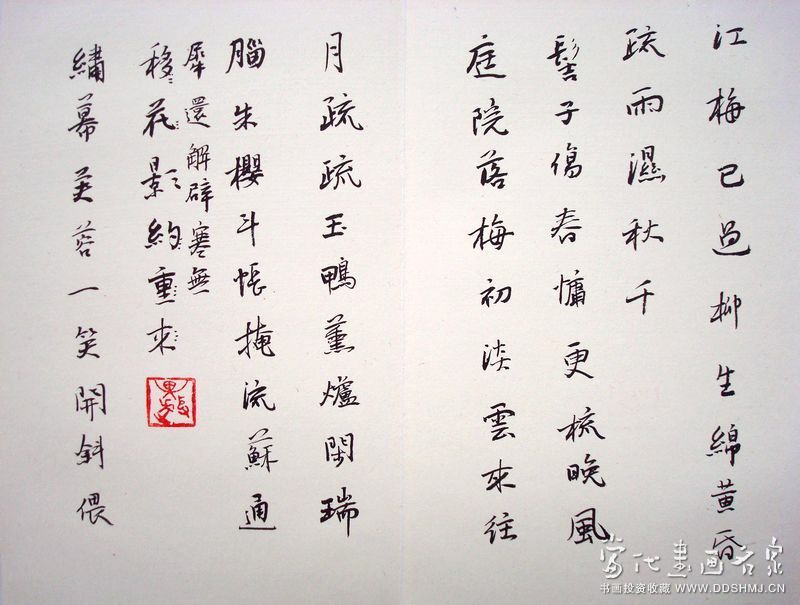 江梅已過柳生綿黃昏
疏雨濕秋千
髻子傷春慵更梳晚風
庭院落梅初淡雲來往
月疏疏玉鴨薰爐閑瑞
腦朱櫻斗帳掩流蘇通
犀還解辟寒無
移花影約重來
繡幕芙蓉一笑開斜偎
當代書画名家
书画投资收藏 WWW.DDSHMJ.CN